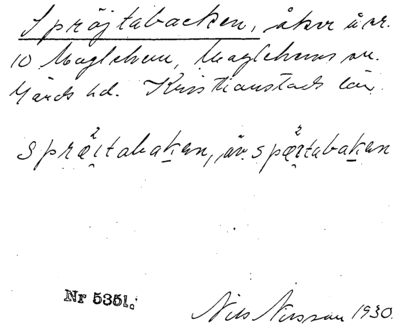 Spröjtabacken, åker å nr.
10 Maglehem, Maglehems sn.
Gärds hd. Kristianstads län.
spræɪtabakan, äv. spæɪtabakan
Nr 5351.
Nils Nilsson 1930.